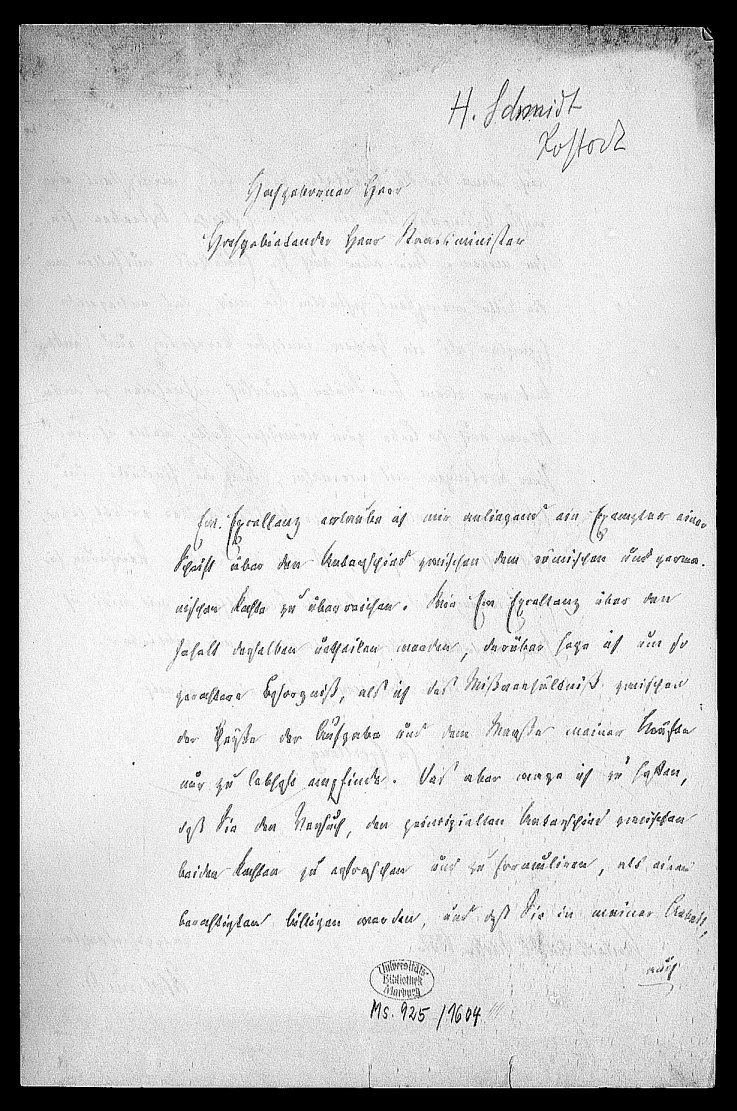 H. Schmidt
Rostock
Hochgeborener Herr
Hochgebietender Herr Staatsminister
Ew. Excellenz erlaube ich mir anliegend ein Exemplar einer
Schrift über den Unterschied zwischen dem römischen und germa-
nischen Rechte zu überreichen. Wie Ew Excellenz über den
Inhalt desselben urtheilen werden, darüber hege ich um so
gerechtere Besorgniß, als ich das Mißverhältniß zwischen
der Größe der Aufgabe und dem Maaße meiner Kräfte
nur zu lebhaft empfinde. Das aber wage ich zu hoffen,
daß Sie den Versuch, den prinzipiellen Unterschied zwischen
beiden Rechten zu erforschen und zu formuliren, als einen
berechtigten billigen werden, und daß Sie in meiner Arbeit,
auch
Universitäts-
Bibliothek
Marburg
Ms. 925/1604